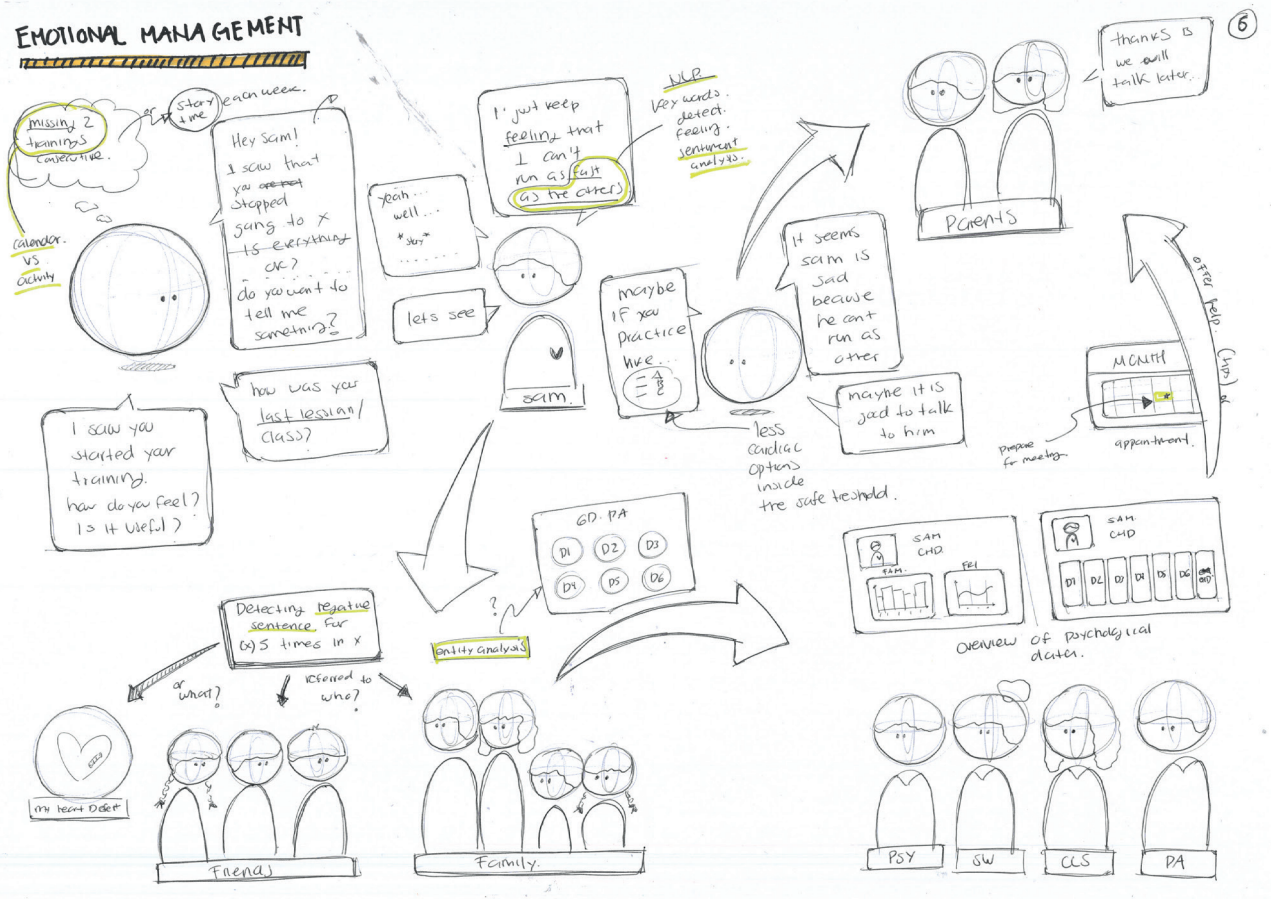 EMOTIONAL MANAGEMENT
6
missing 2
trainings
consecutive.
or
story
time
each week.
calendar.
vs
activity
Hey Sam!
I saw that
you are not
stopped
going to x
Is everything
ok?
do you want to
tell me
something?
how was your
last lession/
class?
I saw you
started your
training.
how do you feel?
Is it useful?
yeah...
well...
*story*
lets see
I just keep
feeling that
I can't
run as fast
as the others
NLP.
Key words.
detect.
feeling.
sentiment
analysis.
sam.
maybe
if you
practice
like...
A
B
C
less
cardiac
options
inside
the safe treshold.
It seems
sam is
sad
because
he cant
run as
other
maybe it is
good to talk
to him
thanks B
we will
talk later.
Parents
offer help. (tips) or
MONTH
prepare
for meeting.
appointment.
GD. PA
D1
D2
D3
D4
D5
D6
?
entity analysis
Detecting negative
sentence for
(x) 5 times in x
or
what?
referred to
who?
my heart Defect
Friends
Family.
SAM
CHD.
FAM.
FRI
SAM
CHD
D1
D2
D3
D4
D5
D6
overview of psycholgical
data.
PSY
SW
CCS
PA